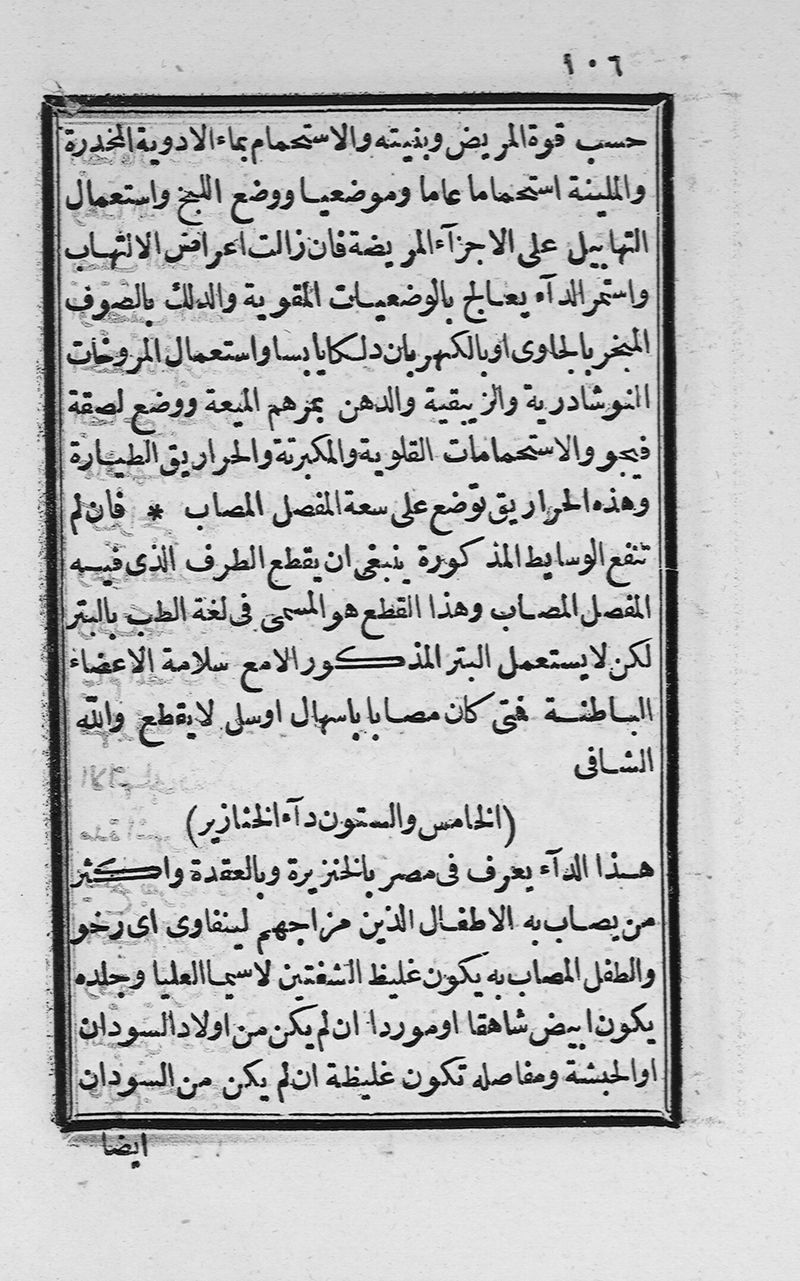 ١٠٦
حسب قوة المريض وبنيته والاستحمام بماء الادوية المخدرة
والملينة استحماما عاما وموضعيا ووضع اللبخ واستعمال
التهابيل على الاجزآء المريضة فان زالت اعراض الالتهاب
واستمر الدآء يعالج بالوضعيات المقوية والدلك بالصوف
المبخر بالجاوى او بالكهربان دلكا يابسا واستعمال المروخات
النوشادرية والزيبقية والدهن بمرهم الميعة ووضع لصقة
فيجو والاستحمامات القلوية والمكبرتة والحراريق الطيارة
وهذه الحراريق توضع على سعة المفصل المصاب * فان لم
تنفع الوسايط المذكورة ينبغى ان يقطع الطرف الذى فيه
المفصل المصاب وهذا القطع هو المسمى فى لغة الطب بالبتر
لكن لا يستعمل البتر المذكور الامع سلامة الاعضاء
الباطنة فتى كان مصابا باسهال اوسل لا يقطع والله
الشافى
(الخامس والستون دآء الخنازير)
هذا الدآء يعرف فى مصر بالخنزيرة وبالعقدة واكثر
من يصاب به الاطفال الذين مزاجهم لينفاوى اى رخو
والطفل المصاب به يكون غليظ الشفتين لاسيما العليا وجلده
يكون ابيض شاهقا او موردا ان لم يكن من اولاد السودان
او الحبشة ومفاصله تكون غليظة ان لم يكن من السودان
ايضا